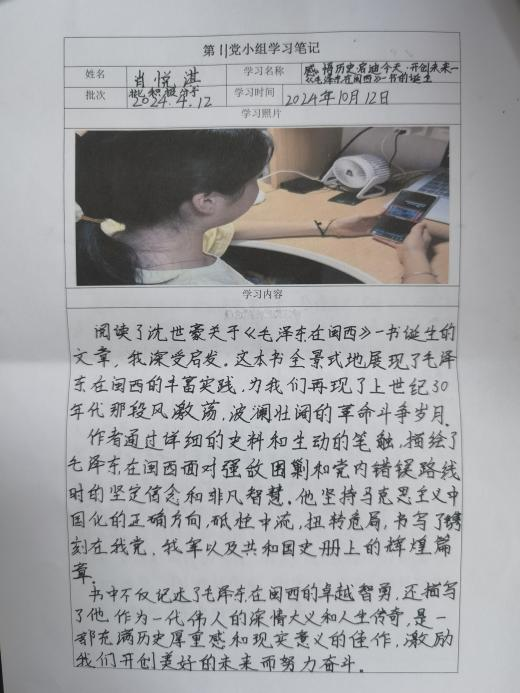 第11党小组学习笔记
姓名 肖悦淇 学习名称 感悟历史启迪今天·开创未来—《毛泽东在闽西》一书的诞生
批次 批积极分子 2024.4.12 学习时间 2024年10月12日
学习照片
学习内容
阅读了沈世豪关于《毛泽东在闽西》一书诞生的
文章，我深受启发。这本书全景式地展现了毛泽
东在闽西的丰富实践，为我们再现了上世纪30
年代那段风激荡，波澜壮阔的革命斗争岁月。
作者通过详细的史料和生动的笔触，描绘了
毛泽东在闽西面对强敌围剿和党内错误路线
时的坚定信念和非凡智慧。他坚持马克思主义中
国化的正确方向，砥柱中流，扭转危局，书写了镌
刻在我党，我军以及共和国史册上的辉煌篇
章。
书中不仅记述了毛泽东在闽西的卓越智勇，还描写
了他作为一代伟人的深情大义和人生传奇，是一
部充满历史厚重感和现实意义的佳作，激励
我们开创美好的未来而努力奋斗。